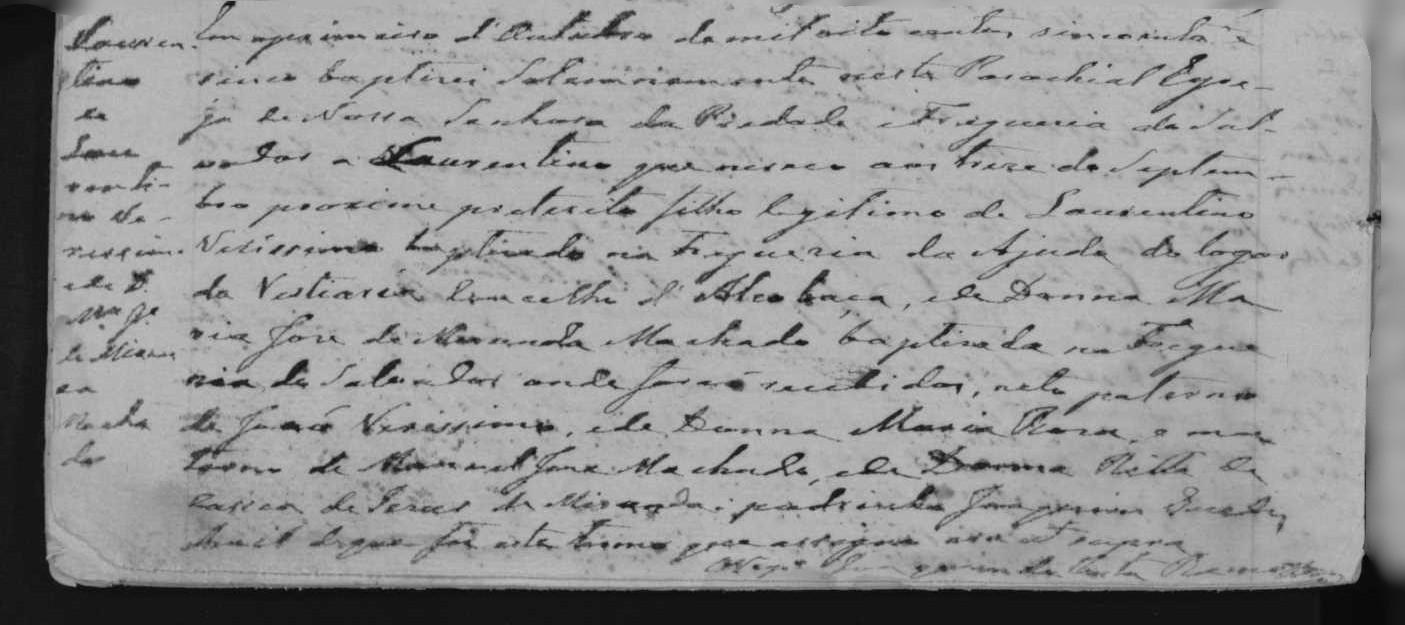 Lauren
tino
de
Lau
renti-
no Ve-
rissimo
e de D.
Mª Jé
de Miran
da
Macha
do
Em o primeiro d'Outubro de mil oito centos sincoenta e
sinco baptizei Solemnemente nesta Parochial Egre-
ja de Nossa Senhora da Piedade e Freguezia do Sal-
vador a Laurentino que nasceo aos treze de Septem-
bro proximo preterito filho legitimo de Laurentino
Verissimo baptizado na Freguezia da Ajuda do logar
da Vestiaria Concelho d'Alcobaça, e de Donna Ma
ria José de Miranda Machado baptizada na Fregue
zia do Salvador onde forão recebidos, neto paterno
de José Verissimo, e de Donna Maria Roza, e ma
terno de Manuel José Machado, e de Donna Ritta
de Jezus de Miranda: padrinho Joaquim Guedes
de que fiz este termo que assignei era ut supra
Joaquim da Costa Ramos